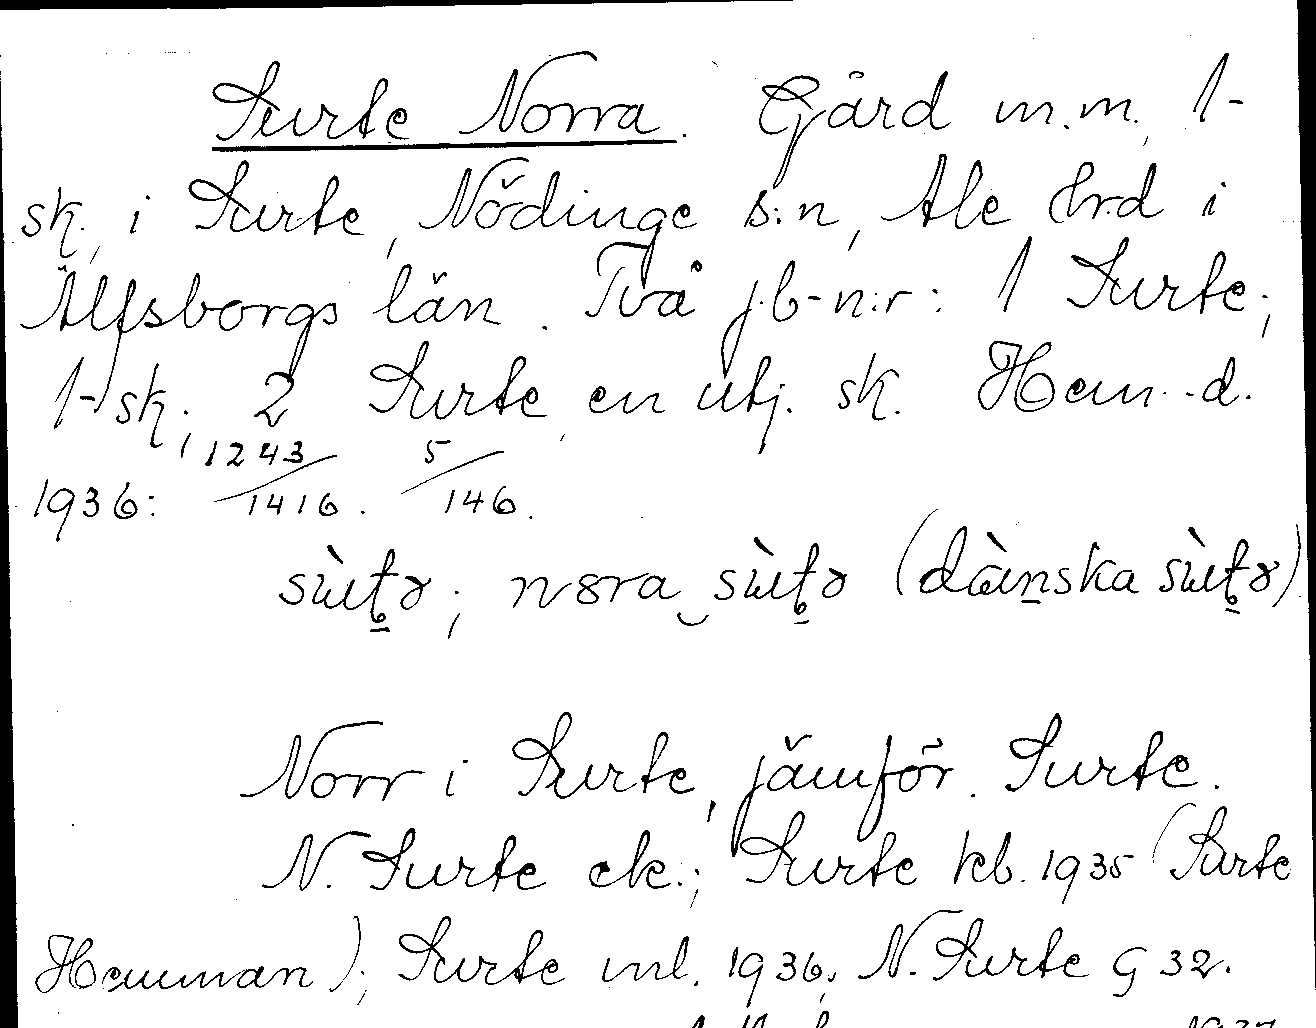 Surte Norra. Gård m.m., 1-
sk., i Surte, Nödinge s:n, Ale hrd i
Älfsborgs län. Två jb-n:r: 1 Surte;
1-sk.; 2 Surte, en utj. sk. Hem.-d.
1936: 1243/1416. 5/146.
Norr i Surte, jämför. Surte.
N. Surte ek.; Surte kb. 1935 (Surte
Hemman); Surte ml. 1936; N. Surte G 32.